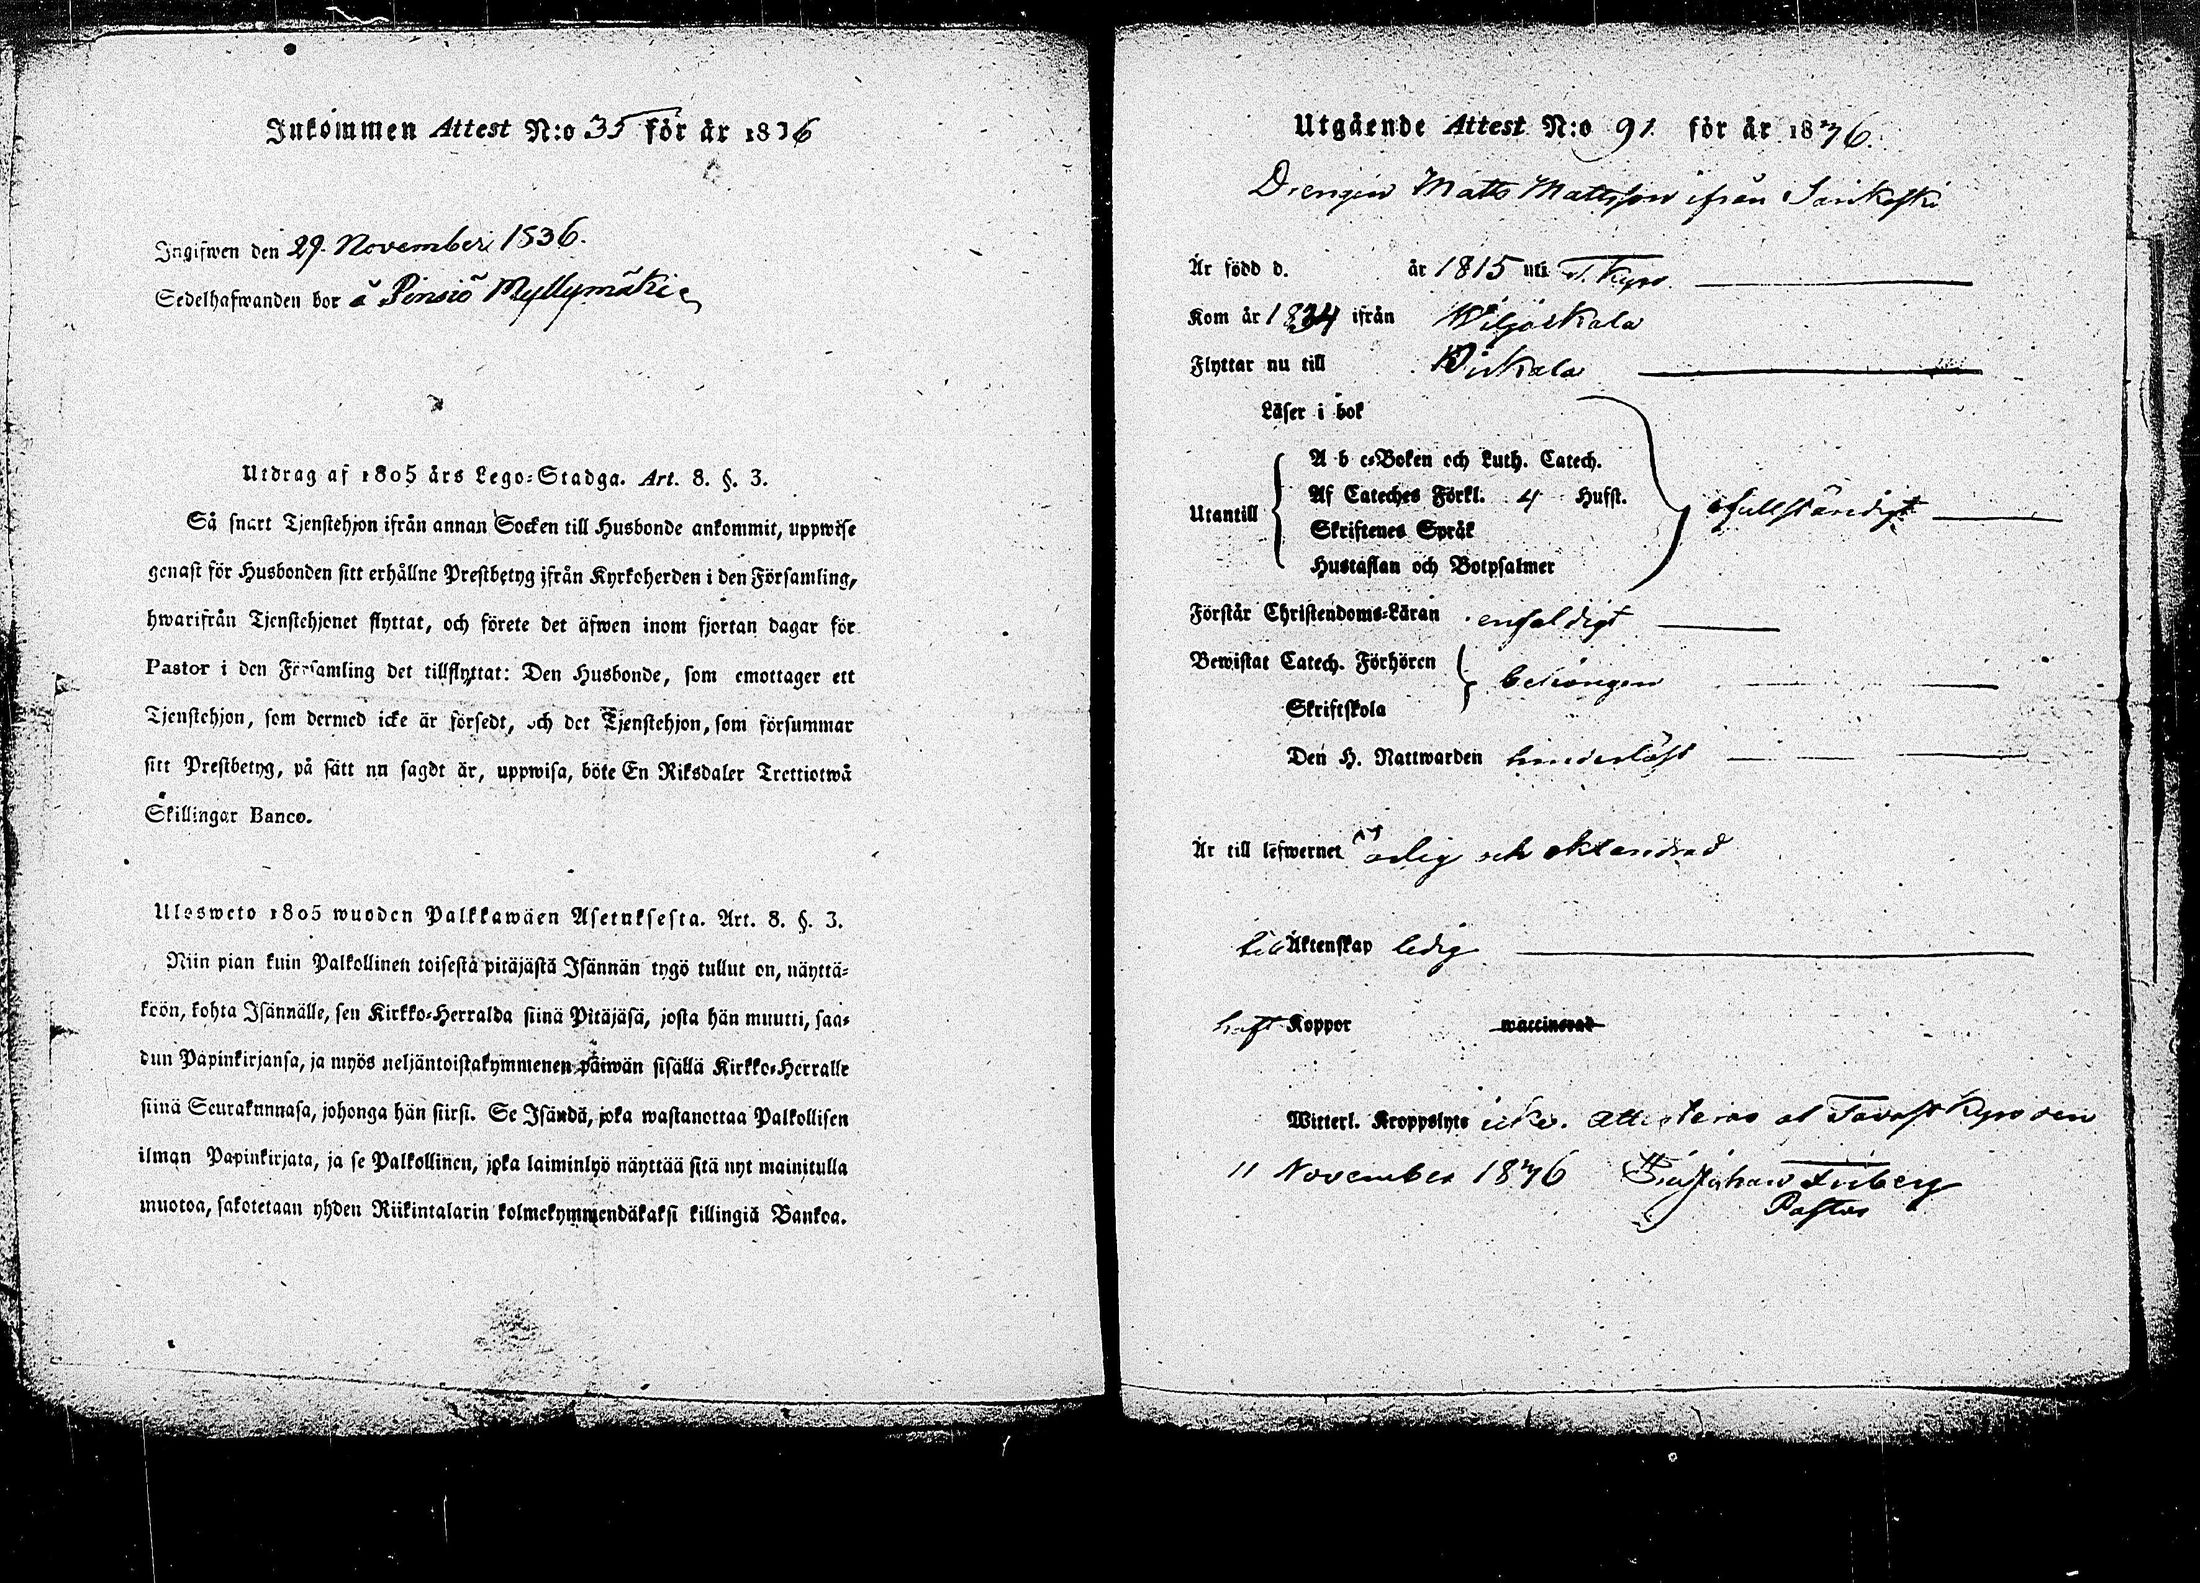 Inkommen Attest N:o 35 för år 1836
Ingifwen den 29. November 1836.
Sedelhafwanden bor å Pinsiö Myllymäki
Utdrag af 1805 års Lego-Stadga. Art. 8. §. 3.
Så snart Tjenstehjon ifrån annan Socken till Husbonde ankommit, uppwise
genast för Husbonden sitt erhållne Prestbetyg ifrån Kyrkoherden i den Församling,
hwarifrån Tjenstehjonet flyttat, och förete det äfwen inom fjortan dagar för
Pastor i den Församling det tillflyttat: Den Husbonde, som emottager ett
Tjenstehjon, som dermed icke är försedt, och det Tjenstehjon, som försummar
sitt Prestbetyg, på sätt nu sagdt är, uppwisa, böte En Riksdaler Trettiotwå
Skillingar Banco.
Ulosweto 1805 wuoden Palkkawäen Asetuksesta. Art. 8. §. 3.
Niin pian kuin Palkollinen toisestä pitäjästä Isännän tygö tullut on, näyttä-
köön, kohta Isännälle, sen Kirkko-Herralda siinä Pitäjäsä, josta hän muutti, saa-
dun Papinkirjansa, ja myös neljäntoistakymmenen päiwän sisällä Kirkko-Herralle
siinä Seurakunnasa, johonga hän siirsi. Se Isändä, joka wastanottaa Palkollisen
ilman Papinkirjata, ja se Palkollinen, joka laiminlyö näyttää sitä nyt mainitulla
muotoa, sakotetaan yhden Riikintalarin kolmekymmendäkaksi killingiä Bankoa.
Utgående Attest N:o 91. för år 1836.
Drengen Matts Mattsson ifrån Sarikoski
Är född d. år 1815 uti T. Kyro
Kom år 1834 ifrån Wiljakkala
Flyttar nu till Birkala
Läser i bok
A b c-Boken och Luth. Catech.
Af Cateches Förkl. 4 Hufst.
Utantill fullständigt
Skriftenes Språk
Hustaflan och Botpsalmer
Förstår Christendoms-Läran enfaldigt
Bewistat Catech. Förhören
behörigen
Skriftskola
Den H. Nattwarden hinderlöst
Är till lefwernet ärlig och oklandrad
till Äktenskap ledig
haft Koppor waccinerad
Witterl. Kroppslyte icke. Attesteras af Tavast Kyro den
11 November 1836 Johan Friberg
Pastor